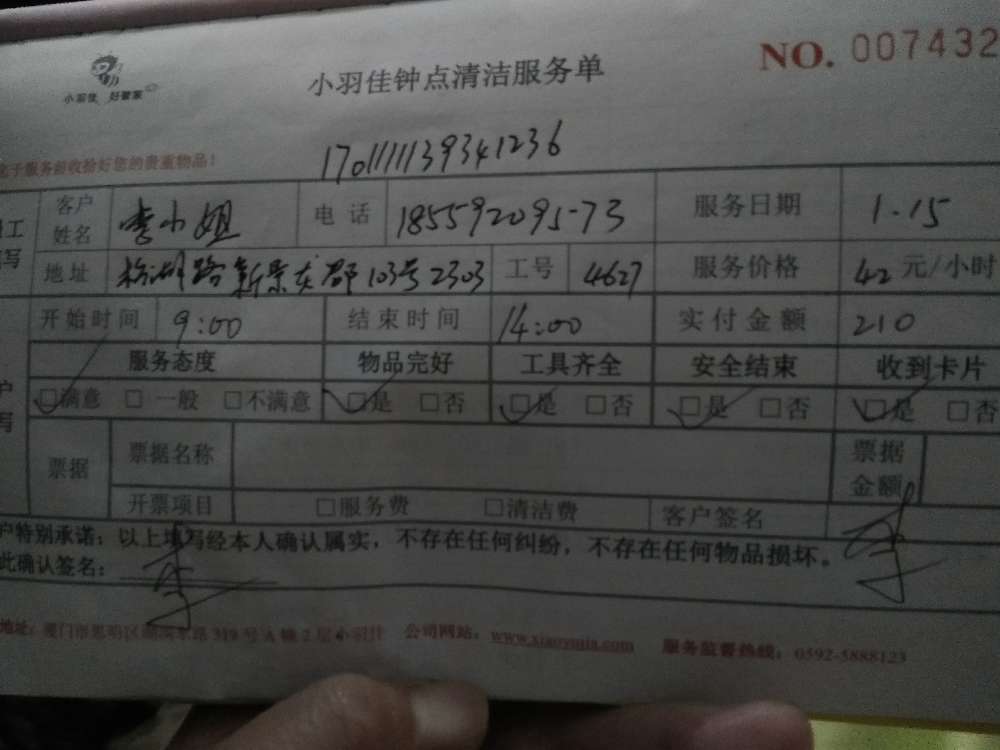 小羽佳 好管家
小羽佳钟点清洁服务单
NO. 007432
服务前收拾好您的贵重物品！
170111139341236
工
写
客户姓名 李小姐 电话 18559209573 服务日期 1.15
地址 路新景龙郡103号2303 工号 4627 服务价格 42 元/小时
开始时间 9:00 结束时间 14:00 实付金额 210
户
写
服务态度 物品完好 工具齐全 安全结束 收到卡片
□满意 □一般 □不满意 □是 □否 □是 □否 □是 □否 □是 □否
票据 票据名称 票据金额
开票项目 □服务费 □清洁费 客户签名 李
户特别承诺：以上填写经本人确认属实，不存在任何纠纷，不存在任何物品损坏。
此确认签名： 李
地址：厦门市思明区 路319号A幢2层小羽佳 公司网站：www.xiaoyujia.com 服务监督热线：0592-5888123